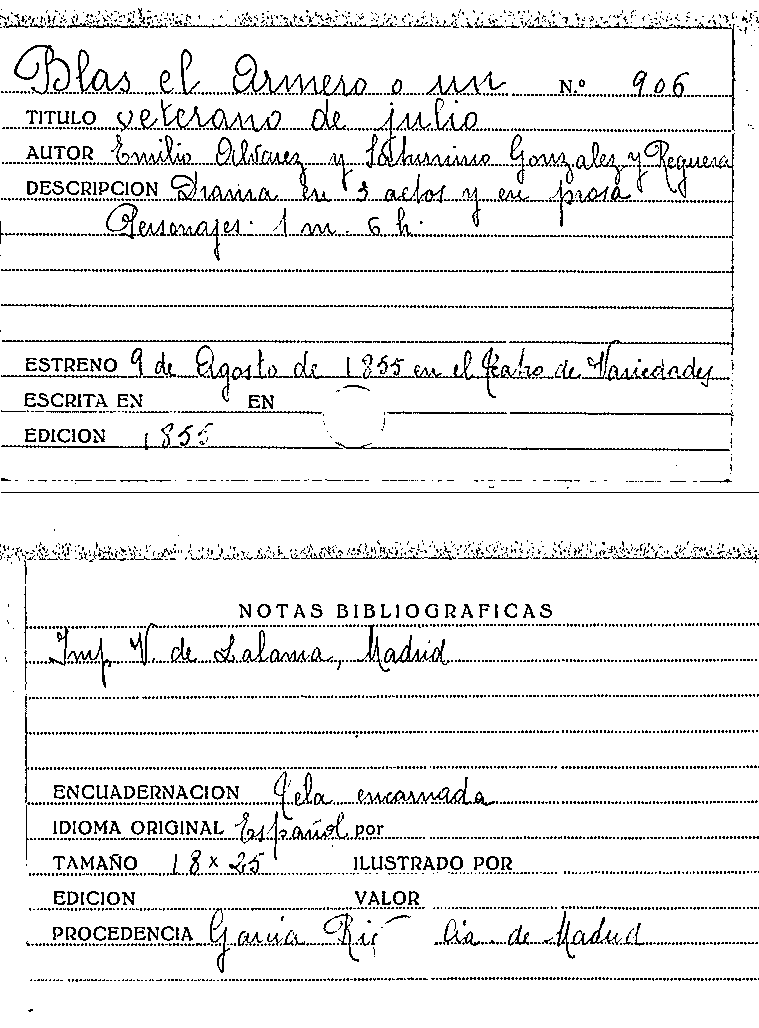 Blas el Armero o un N.º 906
TITULO veterano de julio
AUTOR Emilio Alvarez y Saturnino Gonzalez y Reguera
DESCRIPCION Drama en 3 actos y en prosa
Personajes: 1 m. 6 h.
ESTRENO 9 de Agosto de 1855 en el Teatro de Variedades
ESCRITA EN EN
EDICION 1855
NOTAS BIBLIOGRAFICAS
Imp. V. de Lalama, Madrid
ENCUADERNACION Tela encarnada
IDIOMA ORIGINAL Español por
TAMAÑO 18 x 25 ILUSTRADO POR
EDICION VALOR
PROCEDENCIA Garcia Rico Cia. de Madrid